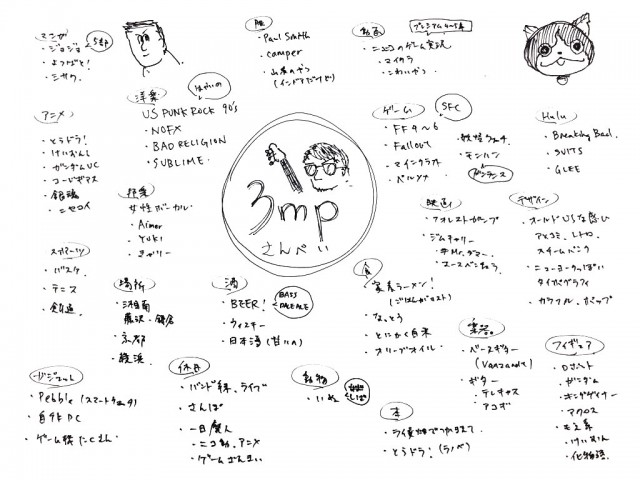 マンガ
5部
・ジョジョ
・よつばと!
服
・Paul Smith
・camper
(インドアだけど)
動画
プレミアム4〜5年
・ニコニコのゲーム実況
・マイクラ
・こわいやつ
アニメ
・とらドラ!
・けいおん!
・ガンダムUC
・コードギアス
・銀魂
・ニセコイ
洋楽
US PUNK ROCK 90's
・NOFX
・BAD RELIGION
・SUBLIME
邦楽
女性ボーカル
・Aimer
・YUKI
3mp
さんぺい
ゲーム
SFC
・FF4〜6
・Fallout
・マインクラフト
・ペルソナ
・妖怪ウォッチ
・モンハン
Hulu
・Breaking Bad
・SUITS
・GLEE
映画
・フォレストガンプ
・ジムキャリー
・エースベンチュラ
デザイン
・オールドUSな感じ
アメコミ、レトロ、
スチームパンク
・ニューヨークっぽい
タイポグラフィ
・カラフル、ポップ
スポーツ
・バスケ
・テニス
・剣道
場所
・湘南
藤沢・鎌倉
・京都
・横浜
酒
・BEER!
BASS
PALE ALE
・ウィスキー
・日本酒
食
・家系ラーメン!
・なっとう
・とにかく白米
・オリーブオイル
楽器
・ベースギター
(Vanzandt)
・ギター
・テレキャス
・アコギ
フィギュア
・ロボット
・ガンダム
・キングゲイナー
・マクロス
・もえ系
・けいおん
・化物語
ガジェット
・Pebble (スマートウォッチ)
・自作PC
・ゲーム機たくさん
休日
・バンド練、ライブ
・さんぽ
・一日廃人
・ニコ動、アニメ
・ゲームざんまい
動物
・いぬ
本
・ライ麦畑でつかまえて
・とらドラ!(ラノベ)